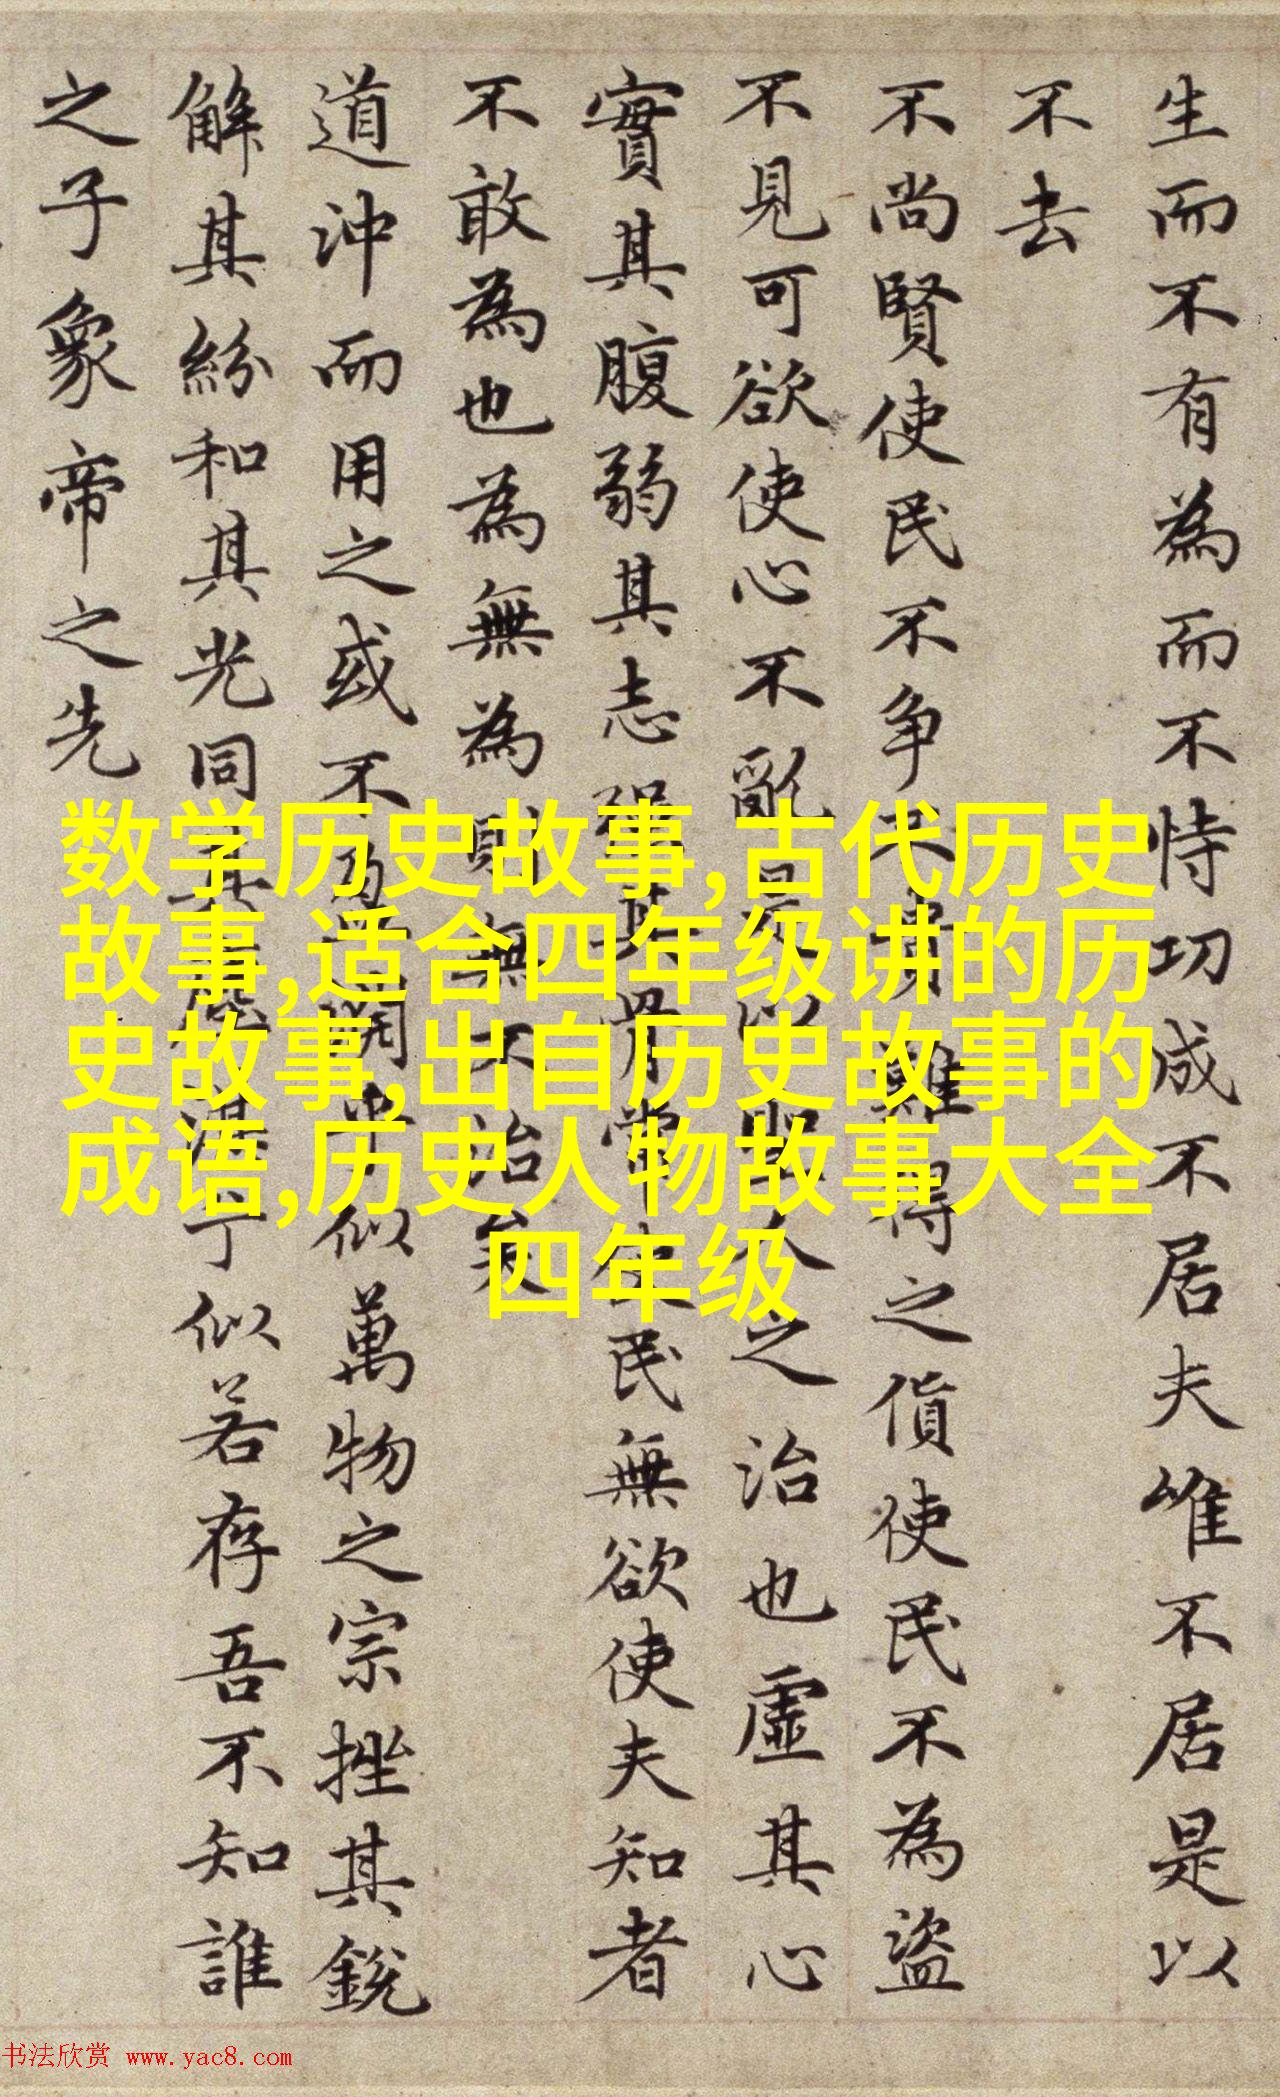 生而不有為而不恃功成不居夫唯不居是以
不去
不尚賢使民不争不貴難得之貨使民不為盜
不見可欲使心不亂是以聖人之治也虛其心
實其腹弱其志強其骨常使民無欲使夫知者
不敢為也為無為則無不治矣
道沖而用之或不盈淵乎似萬物之宗挫其銳
解其紛和其光同其塵湛兮似若存吾不知誰
之子象帝之先
数学历史故事,古代历史
故事,适合四年级讲的历
史故事,出自历史故事的
成语,历史人物故事大全
四年级
书法欣赏 www.yac8.com